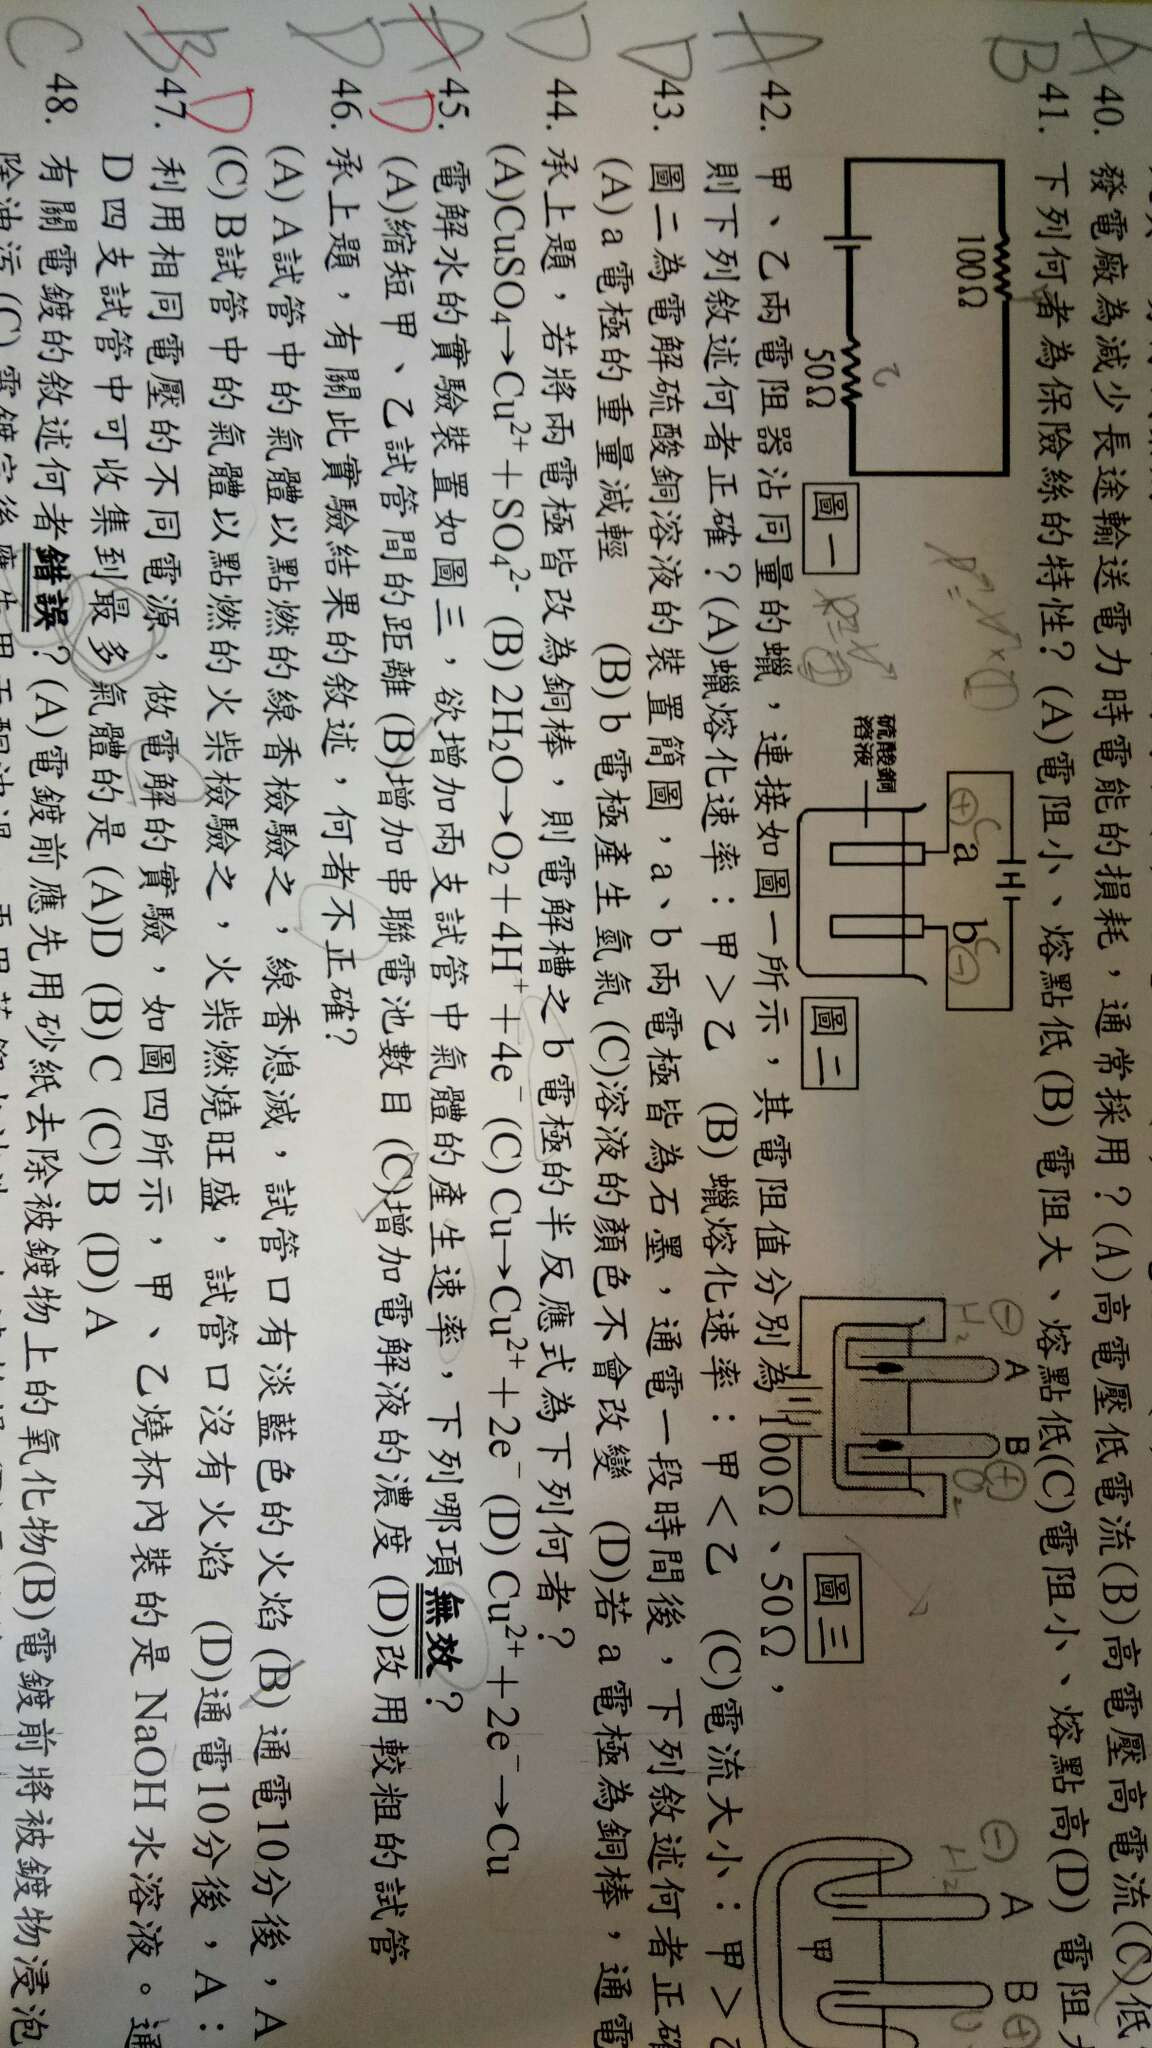 40. 發電廠為減少長途輸送電力時電能的損耗，通常採用？(A)高電壓低電流(B)高電壓高電流(C)低
41. 下列何者為保險絲的特性？(A)電阻小、熔點低 (B) 電阻大、熔點低(C)電阻小、熔點高(D) 電阻
100Ω
50Ω
圖一
硫酸銅
溶液
a
b
圖二
A
B
圖三
A
B
甲
42. 甲、乙兩電阻器沾同量的蠟，連接如圖一所示，其電阻值分別為 100Ω、50Ω，
則下列敘述何者正確？(A)蠟熔化速率：甲＞乙 (B) 蠟熔化速率：甲＜乙 (C)電流大小：甲＞乙
43. 圖二為電解硫酸銅溶液的裝置簡圖，a、b 兩電極皆為石墨，通電一段時間後，下列敘述何者正確
(A) a 電極的重量減輕 (B) b 電極產生氫氣 (C)溶液的顏色不會改變 (D)若 a 電極為銅棒，通電
44. 承上題，若將兩電極皆改為銅棒，則電解槽之 b 電極的半反應式為下列何者？
(A)CuSO₄→Cu²⁺＋SO₄²⁻ (B) 2H₂O→O₂＋4H⁺＋4e⁻ (C) Cu→Cu²⁺＋2e⁻ (D) Cu²⁺＋2e⁻→Cu
45. 電解水的實驗裝置如圖三，欲增加兩支試管中氣體的產生速率，下列哪項無效？
(A)縮短甲、乙試管間的距離 (B)增加串聯電池數目 (C)增加電解液的濃度 (D)改用較粗的試管
46. 承上題，有關此實驗結果的敘述，何者不正確？
(A) A試管中的氣體以點燃的線香檢驗之，線香熄滅，試管口有淡藍色的火焰 (B) 通電10分後，A
(C) B試管中的氣體以點燃的火柴檢驗之，火柴燃燒旺盛，試管口沒有火焰 (D)通電10分後，A：
47. 利用相同電壓的不同電源，做電解的實驗，如圖四所示，甲、乙燒杯內裝的是 NaOH 水溶液。通
D 四支試管中可收集到最多氣體的是 (A)D (B) C (C) B (D) A
48. 有關電鍍的敘述何者錯誤？(A)電鍍前應先用砂紙去除被鍍物上的氧化物(B)電鍍前將被鍍物浸泡
除油污 (C)電鍍完後